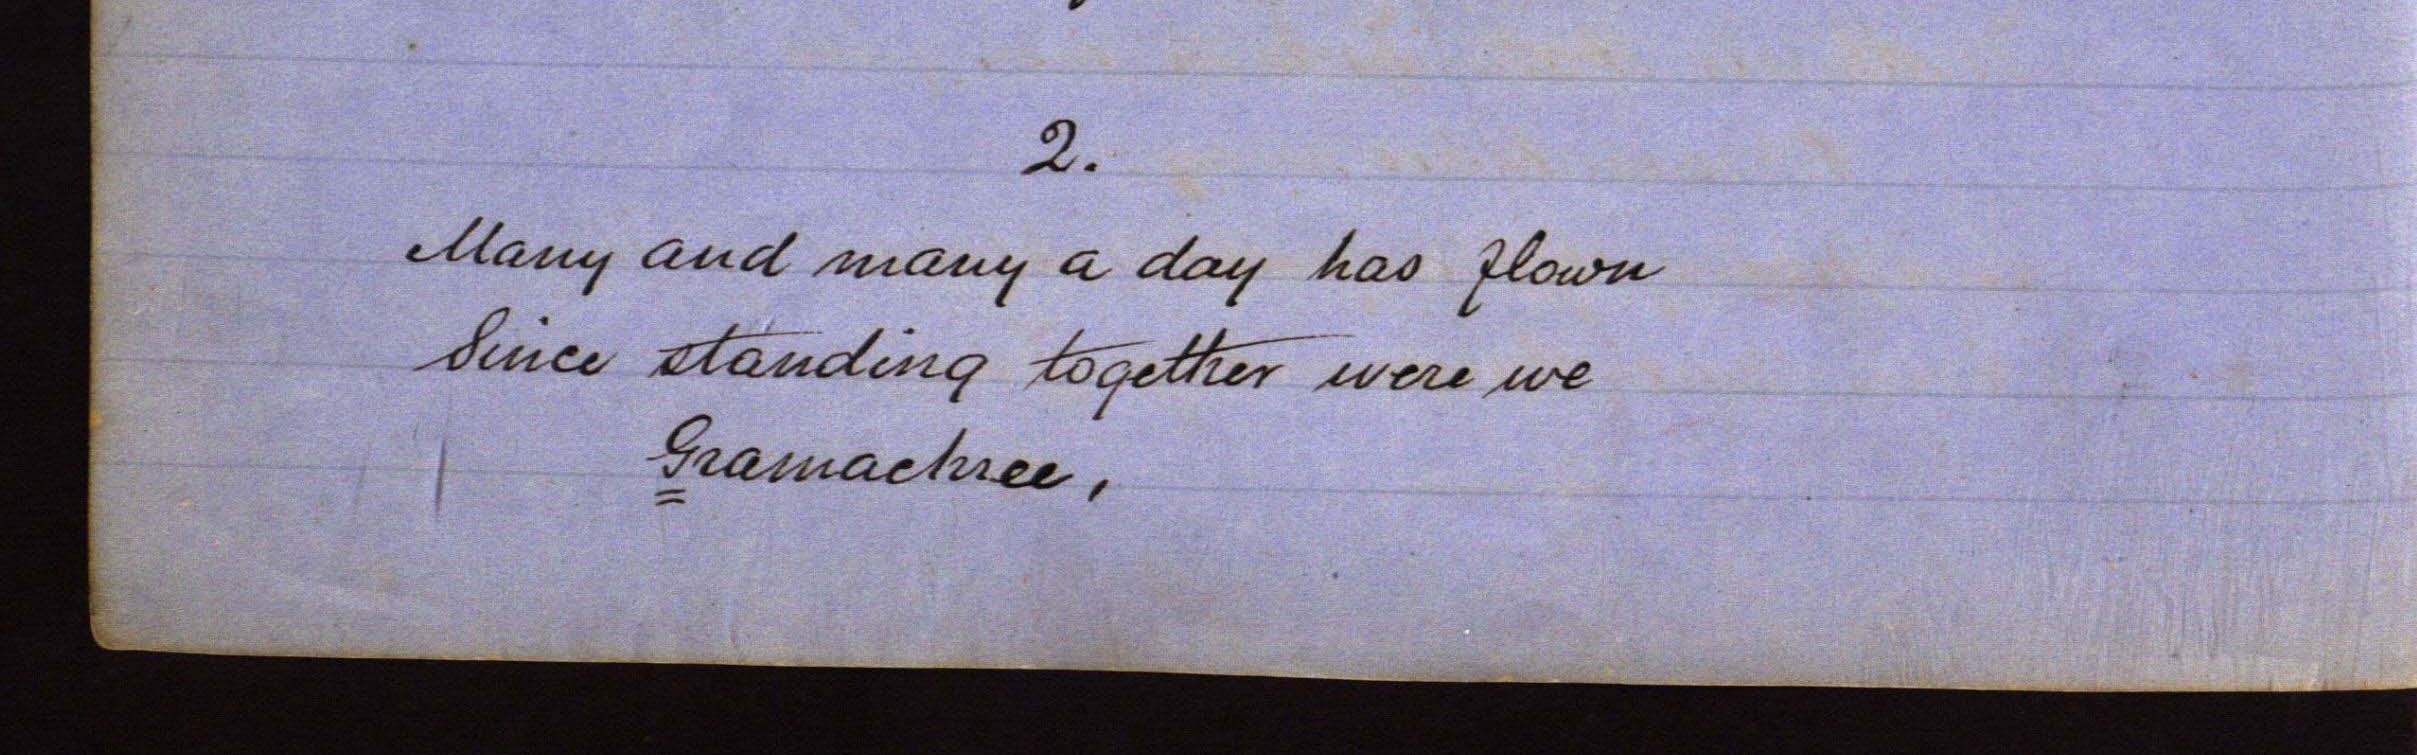 2.
Many and many a day has flown
Since standing together were we
Gramachree,